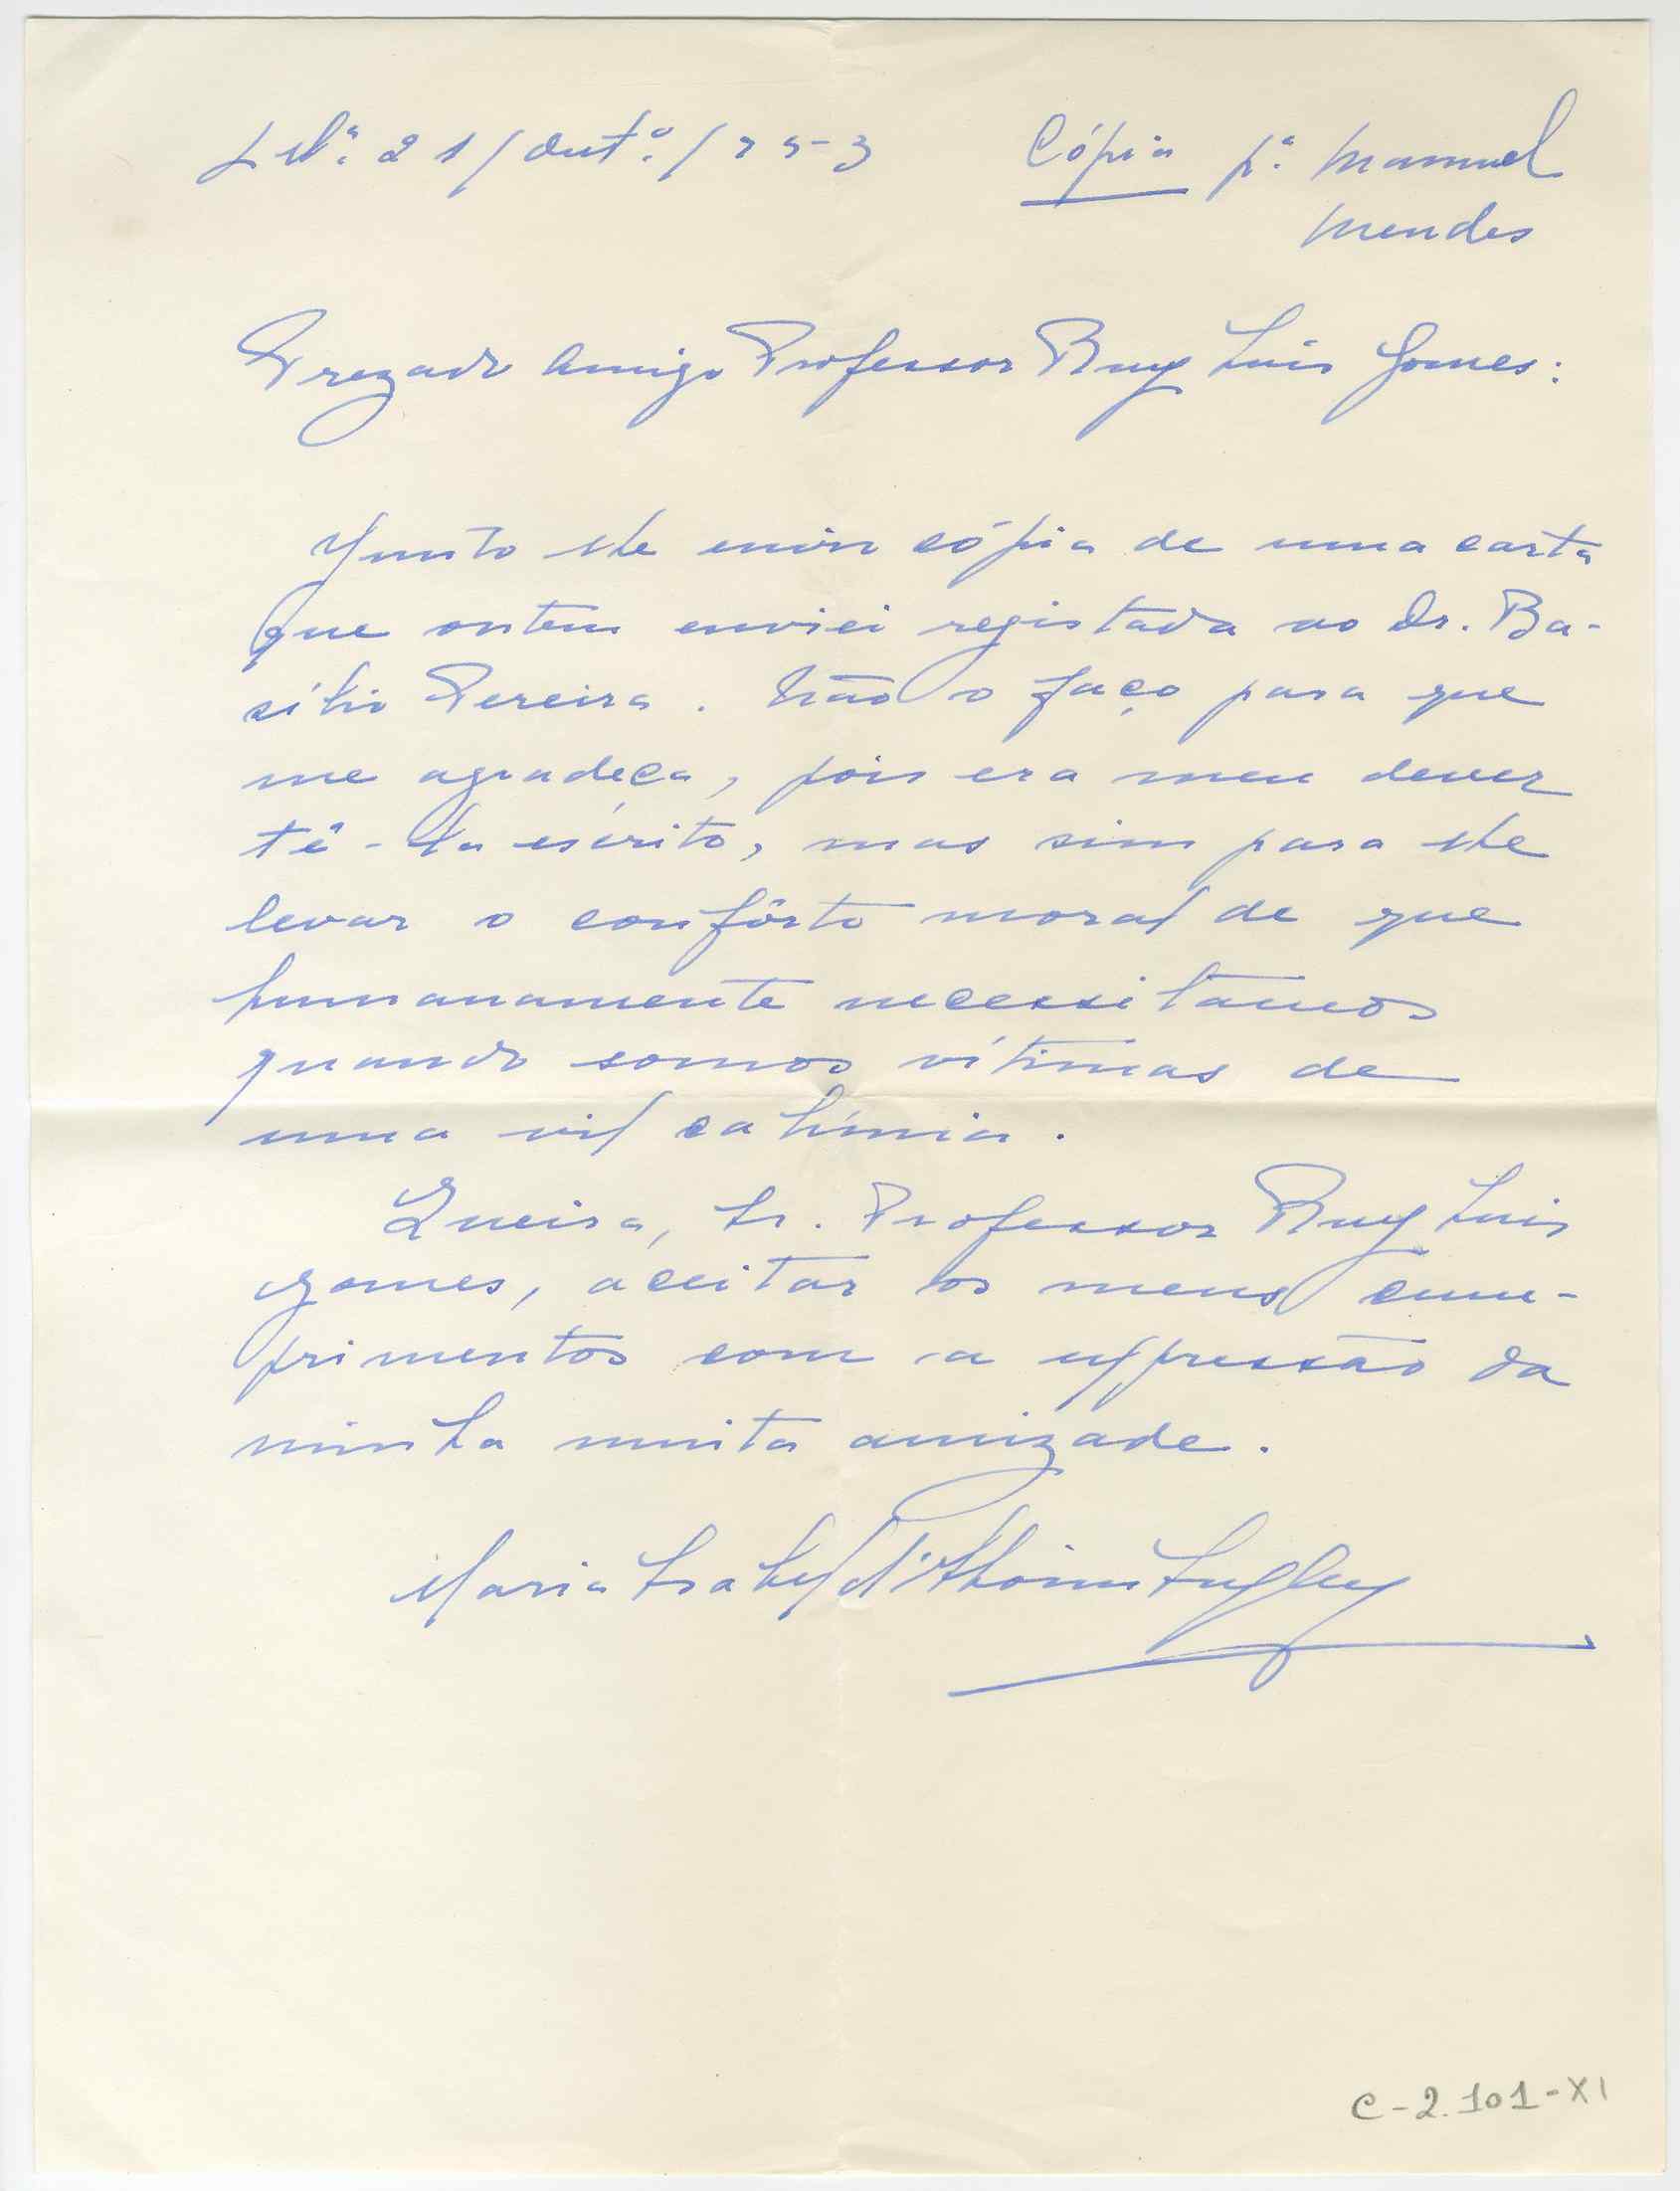 Lxª. 21/Outº./953 Cópia pª. Manuel
Mendes
Prezado Amigo Professor Ruy Luis Gomes:
Junto lhe envio cópia de uma carta
que ontem enviei registada ao Dr. Ba-
sílio Pereira. Não o faço para que
me agradeça, pois era meu dever
tê-la escrito, mas sim para lhe
levar o confôrto moral de que
humanamente necessitamos
quando somos vítimas de
uma vil calúnia.
Queira, Sr. Professor Ruy Luis
Gomes, aceitar os meus cum-
primentos com a expressão da
minha muita amizade.
Maria Isabel d'Aboim Inglez
C-2.101-XI